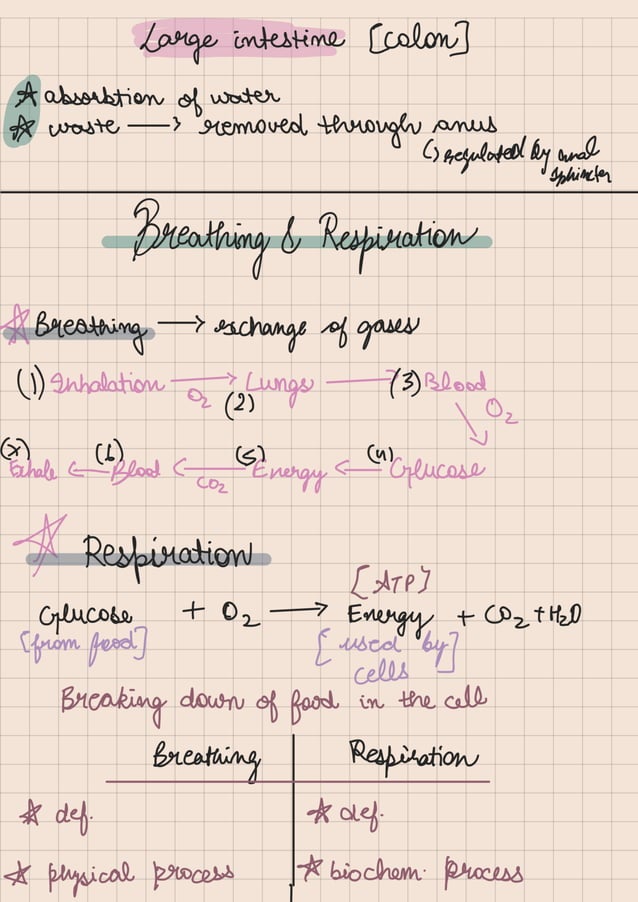 Large intestine [colon]
☆ absorbtion of water
☆ waste → removed through anus
↳ regulated by anal
sphincter
Breathing & Respiration
☆ Breathing → exchange of gases
(1) Inhalation → O2 Lungs (2) → (3) Blood
O2
(7) Exhale ← (6) Blood ← CO2 (5) Energy ← (4) Glucose
☆ Respiration
[ATP]
Glucose + O2 → Energy + CO2 + H2O
[from food] [used by
cells]
Breaking down of food in the cell
Breathing Respiration
☆ def. ☆ def.
☆ physical process ☆ biochem. process